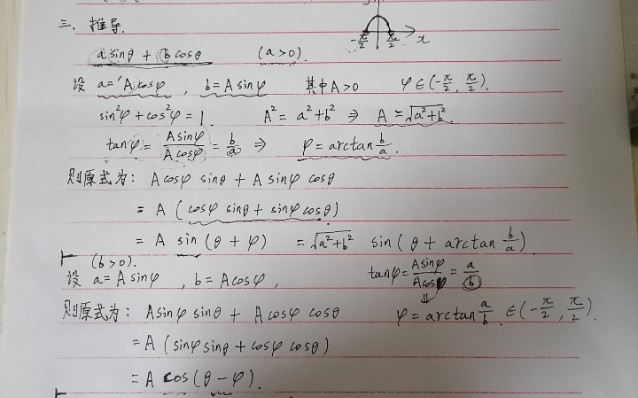 三、推导.
-π/2 π/2 x
a sinθ + b cosθ (a>0).
设 a=Acosφ , b=Asinφ 其中A>0 φ∈(-π/2, π/2).
sin²φ+cos²φ=1. A²=a²+b² ⇒ A=√a²+b².
tanφ=Asinφ/Acosφ=b/a ⇒ φ=arctan b/a.
则原式为: Acosφ sinθ + Asinφ cosθ
= A (cosφ sinθ + sinφ cosθ)
= A sin (θ+φ) =√a²+b² sin (θ + arctan b/a).
(b>0).
设 a=Asinφ , b=Acosφ , tanφ=Asinφ/Acosφ=a/b
⇓
则原式为: Asinφ sinθ + Acosφ cosθ φ=arctan a/b ∈(-π/2, π/2).
=A (sinφ sinθ + cosφ cosθ)
=A cos (θ-φ).